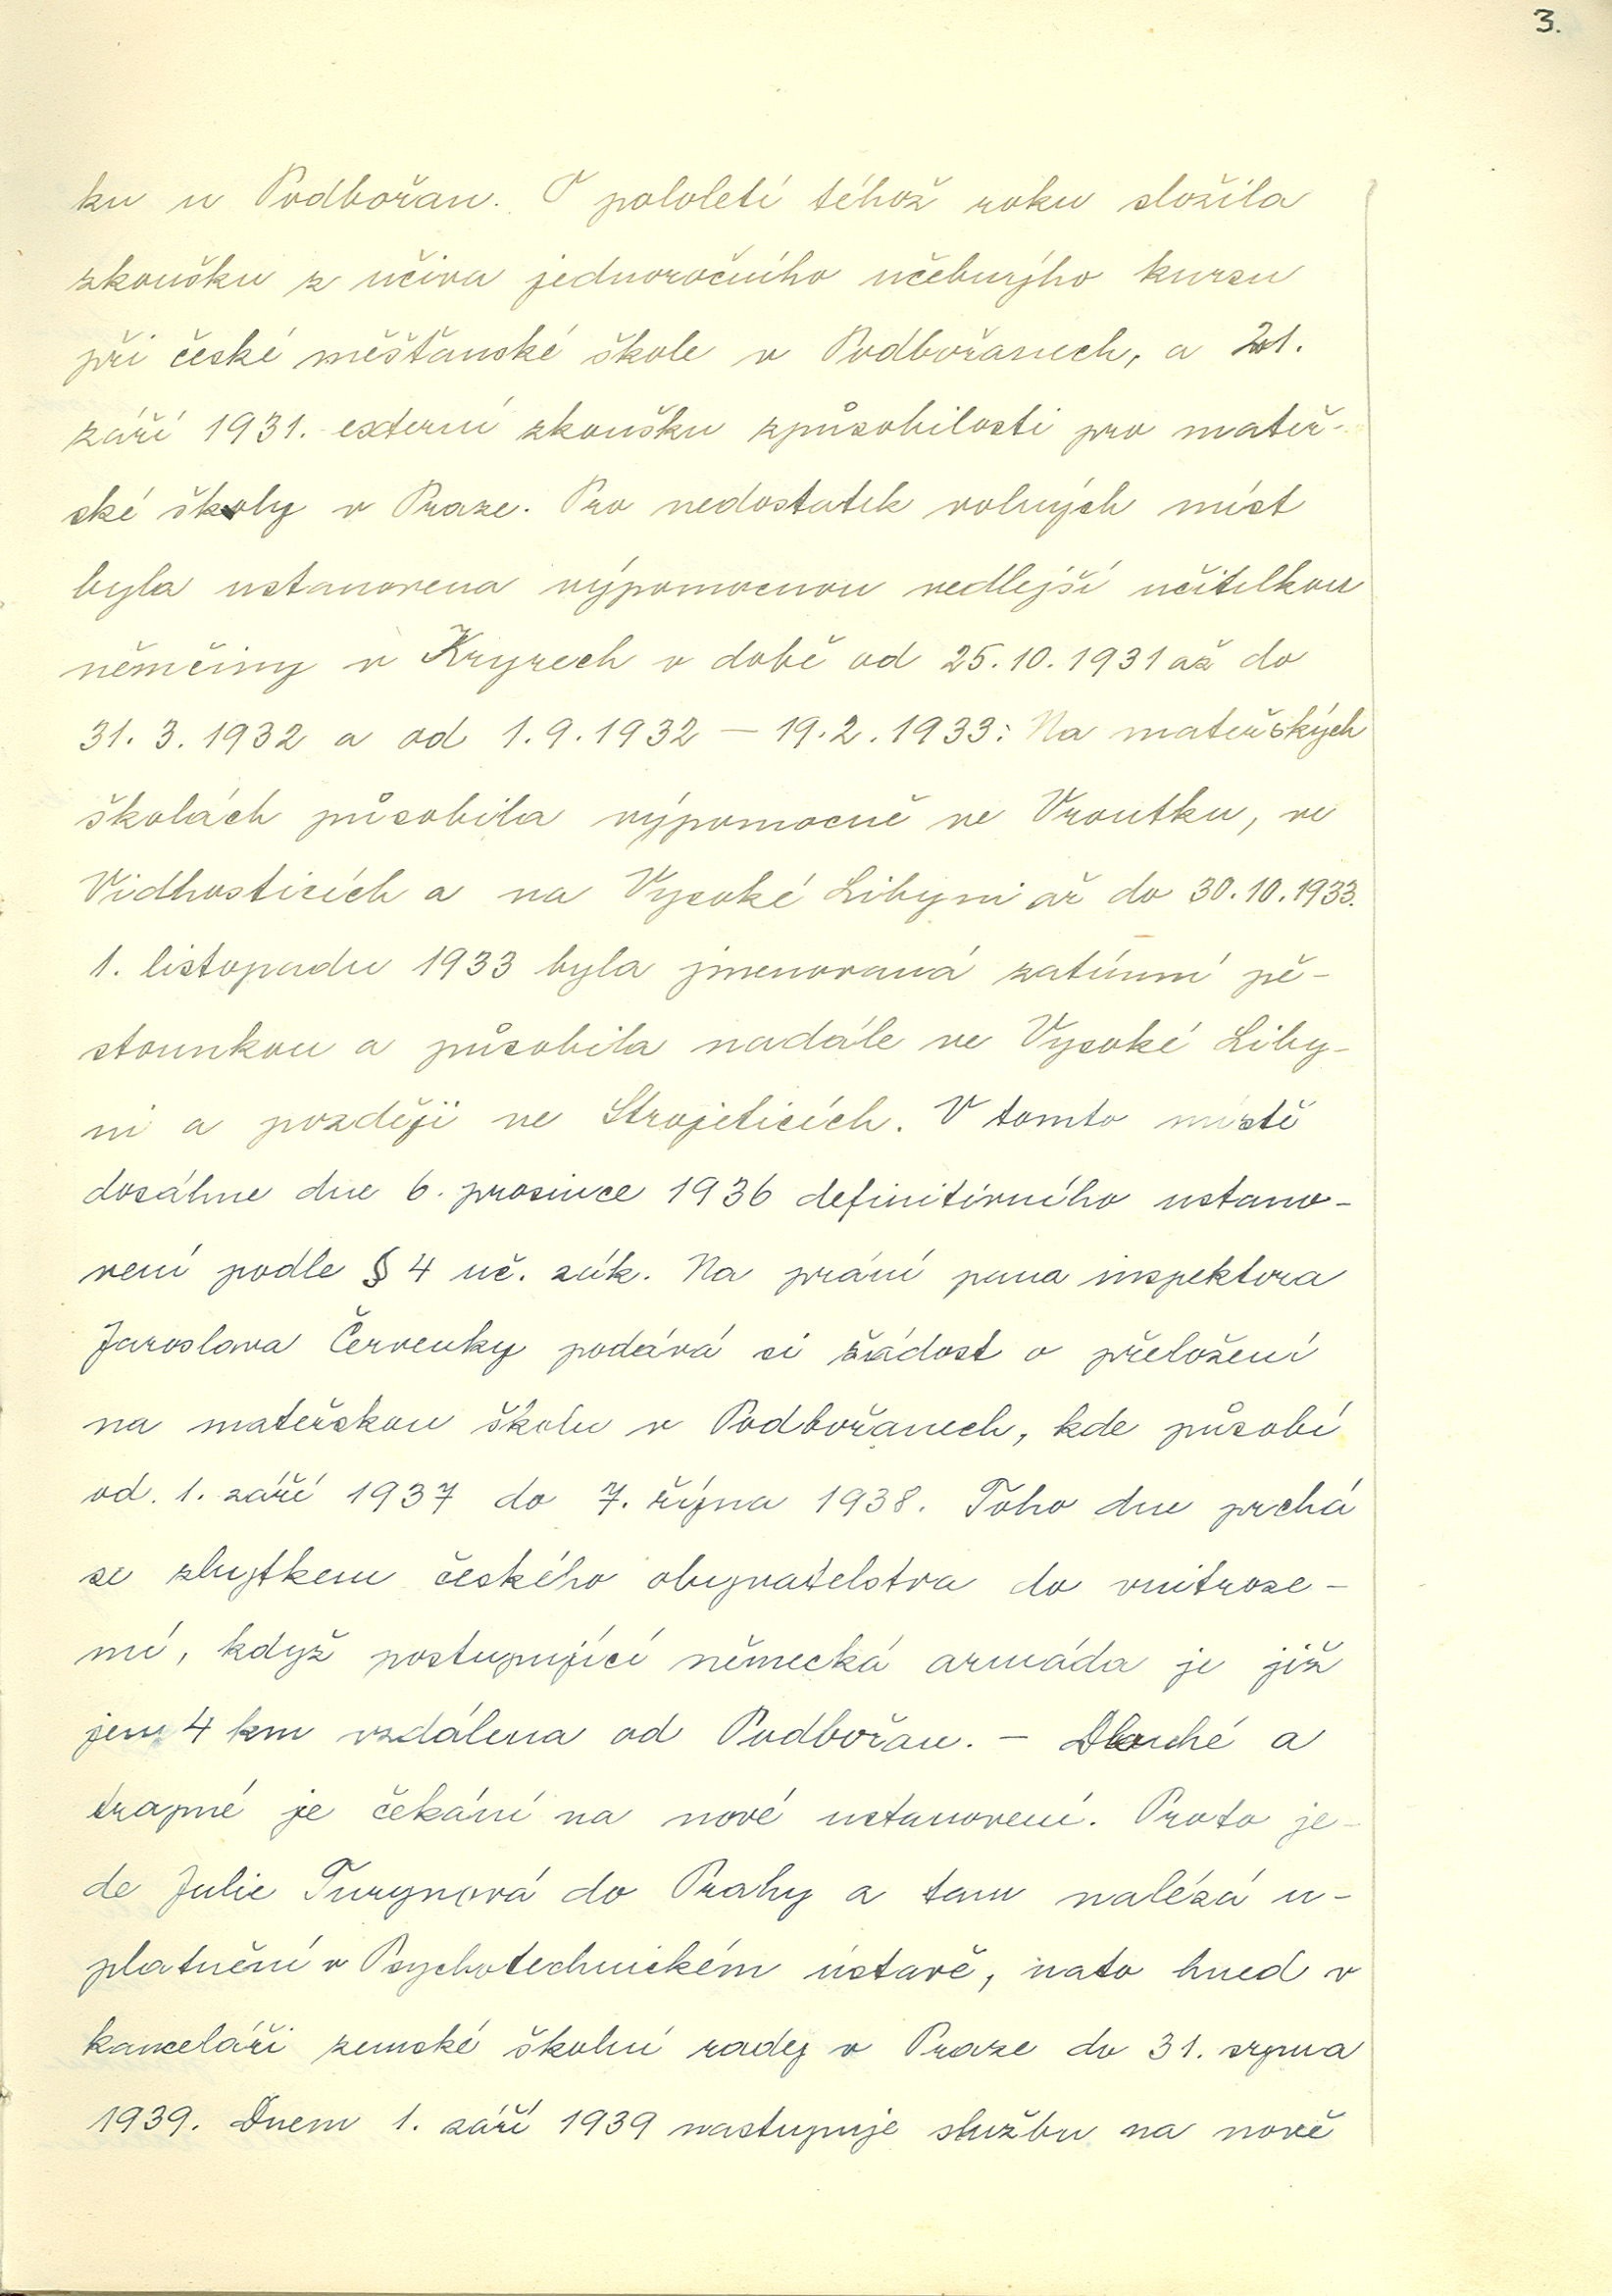 3.
ku u Podbořan. V pololetí téhož roku složila
zkoušku z učiva jednoročního učebnýho kursu
při české měšťanské škole v Podbořanech, a 21.
září 1931. externí zkoušku způsobilosti pro mateř-
ské školy v Praze. Pro nedostatek volných míst
byla ustanovena výpomocnou vedlejší učitelkou
němčiny v Kryrech v době od 25.10.1931 až do
31. 3. 1932 a od 1.9.1932 — 19.2.1933: Na mateřských
školách působila výpomocně ve Vroutku, ve
Vidhosticích a na Vysoké Libyni až do 30.10.1933.
1. listopadu 1933 byla jmenovaná zatímní pě-
stounkou a působila nadále ve Vysoké Liby-
ni a později ve Strojeticích. V tomto místě
dosáhne dne 6. prosince 1936 definitivního ustano-
vení podle § 4 uč. zák. Na přání pana inspektora
Jaroslava Červenky podává si žádost o přeložení
na mateřskou školu v Podbořanech, kde působí
od. 1. září 1937 do 7. října 1938. Toho dne prchá
se zbytkem českého obyvatelstva do vnitroze-
mí, když postupující německá armáda je již
jen 4 km vzdálena od Podbořan. — Dlouhé a
trapné je čekání na nové ustanovení. Proto je-
de Julie Turynová do Prahy a tam nalézá u-
platnění v Psychotechnickém ústavě, nato hned v
kanceláři zemské školní rady v Praze do 31. srpna
1939. Dnem 1. září 1939 nastupuje službu na nově